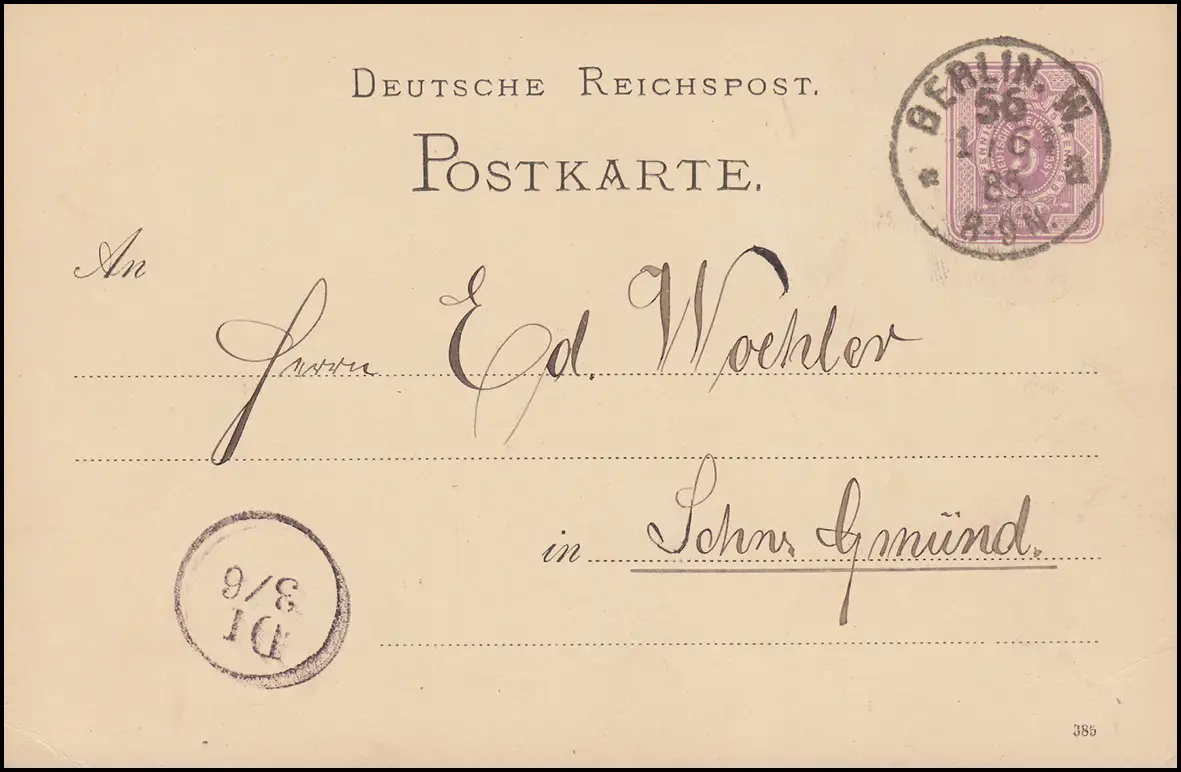 DEUTSCHE REICHSPOST.
POSTKARTE.
BERLIN, W.
56
1 6
85
8-9 N.
* a
5
DEUTSCHE REICHS
An
Herrn Ed. Woehler
in Schw. Gmünd.
3/6
D1
385